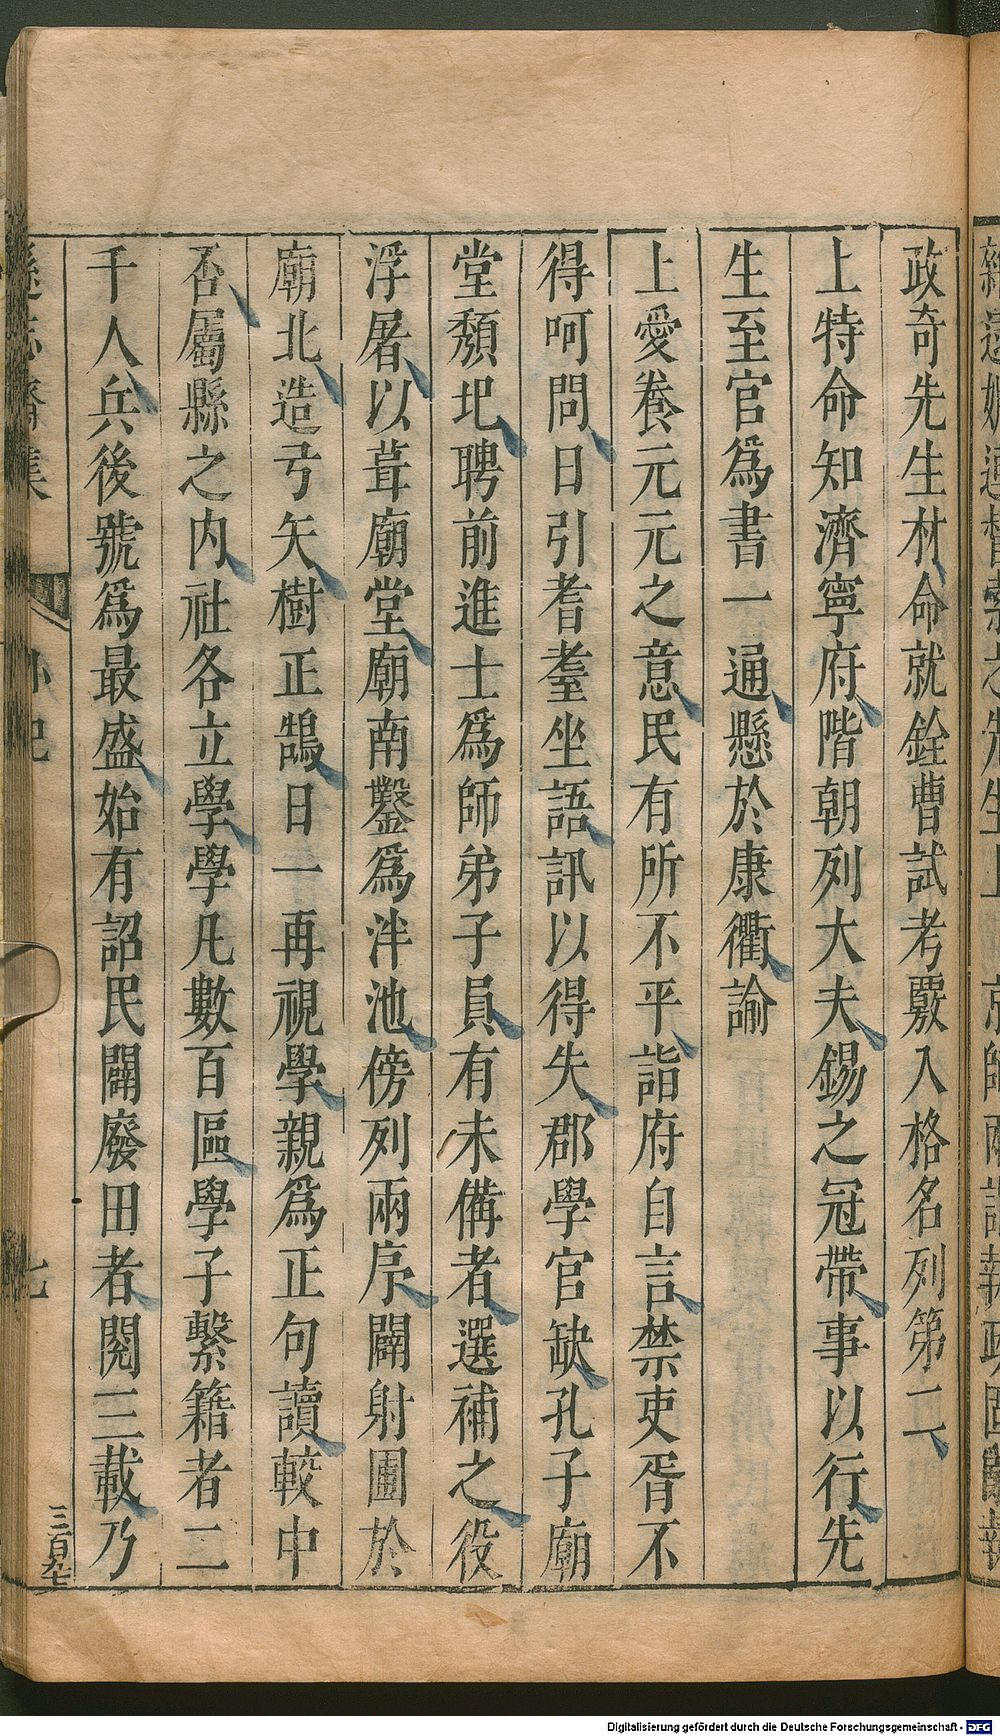 政奇先生材命就銓曹試考覈入格名列第二
上特命知濟寧府階朝列大夫錫之冠帶事以行先
生至官爲書一通懸於康衢諭
上愛養元元之意民有所不平詣府自言禁吏胥不
得呵問日引耆耋坐語訊以得失郡學官缺孔子廟
堂頽圯聘前進士爲師弟子員有未備者選補之役
浮屠以葺廟堂廟南鑿爲泮池傍列兩序闢射圃於
廟北造弓矢樹正鵠日一再視學親爲正句讀較中
否屬縣之内社各立學學凡數百區學子繫籍者二
千人兵後號爲最盛始有詔民闢廢田者閱三載乃
遜志齋集
七
三百九七
Digitalisierung gefördert durch die Deutsche Forschungsgemeinschaft - DFG